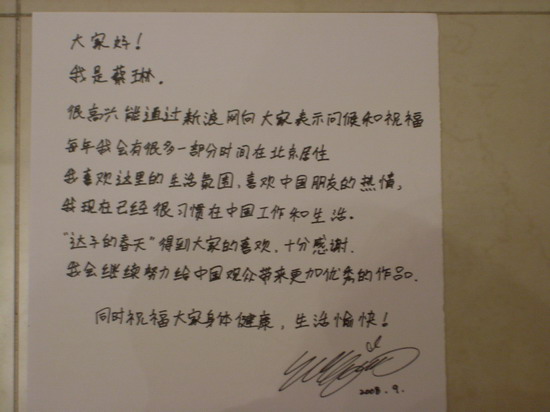 大家好！
我是蔡琳.
很高兴能通过新浪网向大家表示问候和祝福
每年我会有很多一部分时间在北京居住
我喜欢这里的生活氛围,喜欢中国朋友的热情,
我现在已经很习惯在中国工作和生活.
"达子的春天"得到大家的喜欢,十分感谢.
我会继续努力给中国观众带来更加优秀的作品.
同时祝福大家身体健康,生活愉快!
2008.9.